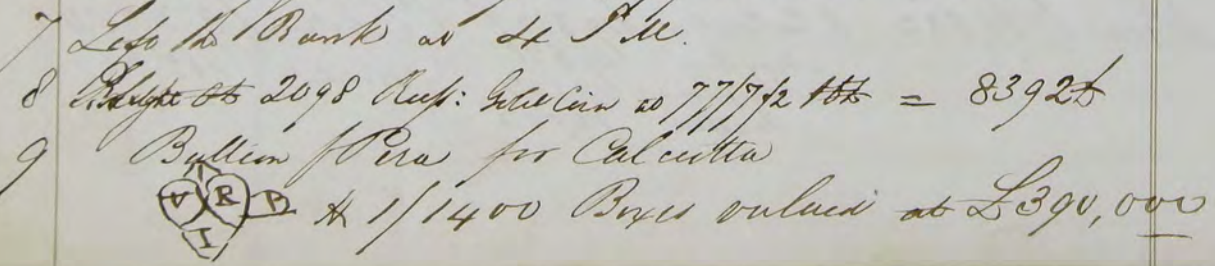 7 Left the Bank at 4 P.M.
8 Bought oz 2098 Russ: Gold Coin at 77/7½ = 8392
9 Bullion / Pera for Calcutta
V R P I # 1/1400 Boxes valued at £390,000